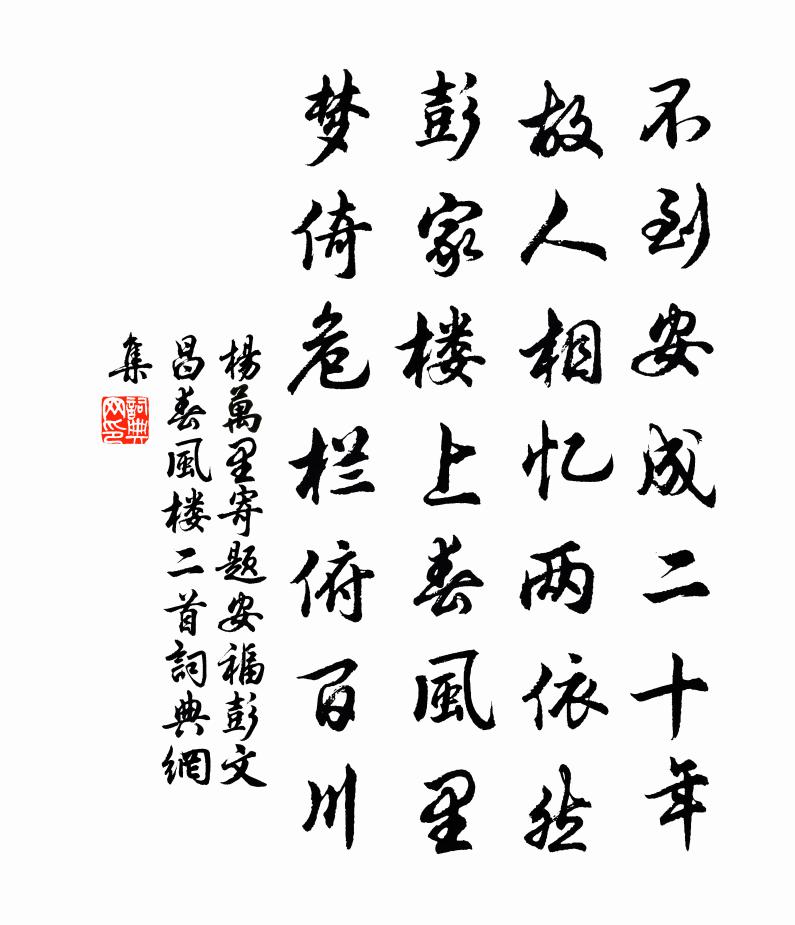 不到安成二十年
故人相忆两依然
彭家楼上春風里
梦倚危栏俯百川
楊萬里寄題安福彭文
昌春風楼二首詞典網
集
詞典
网印